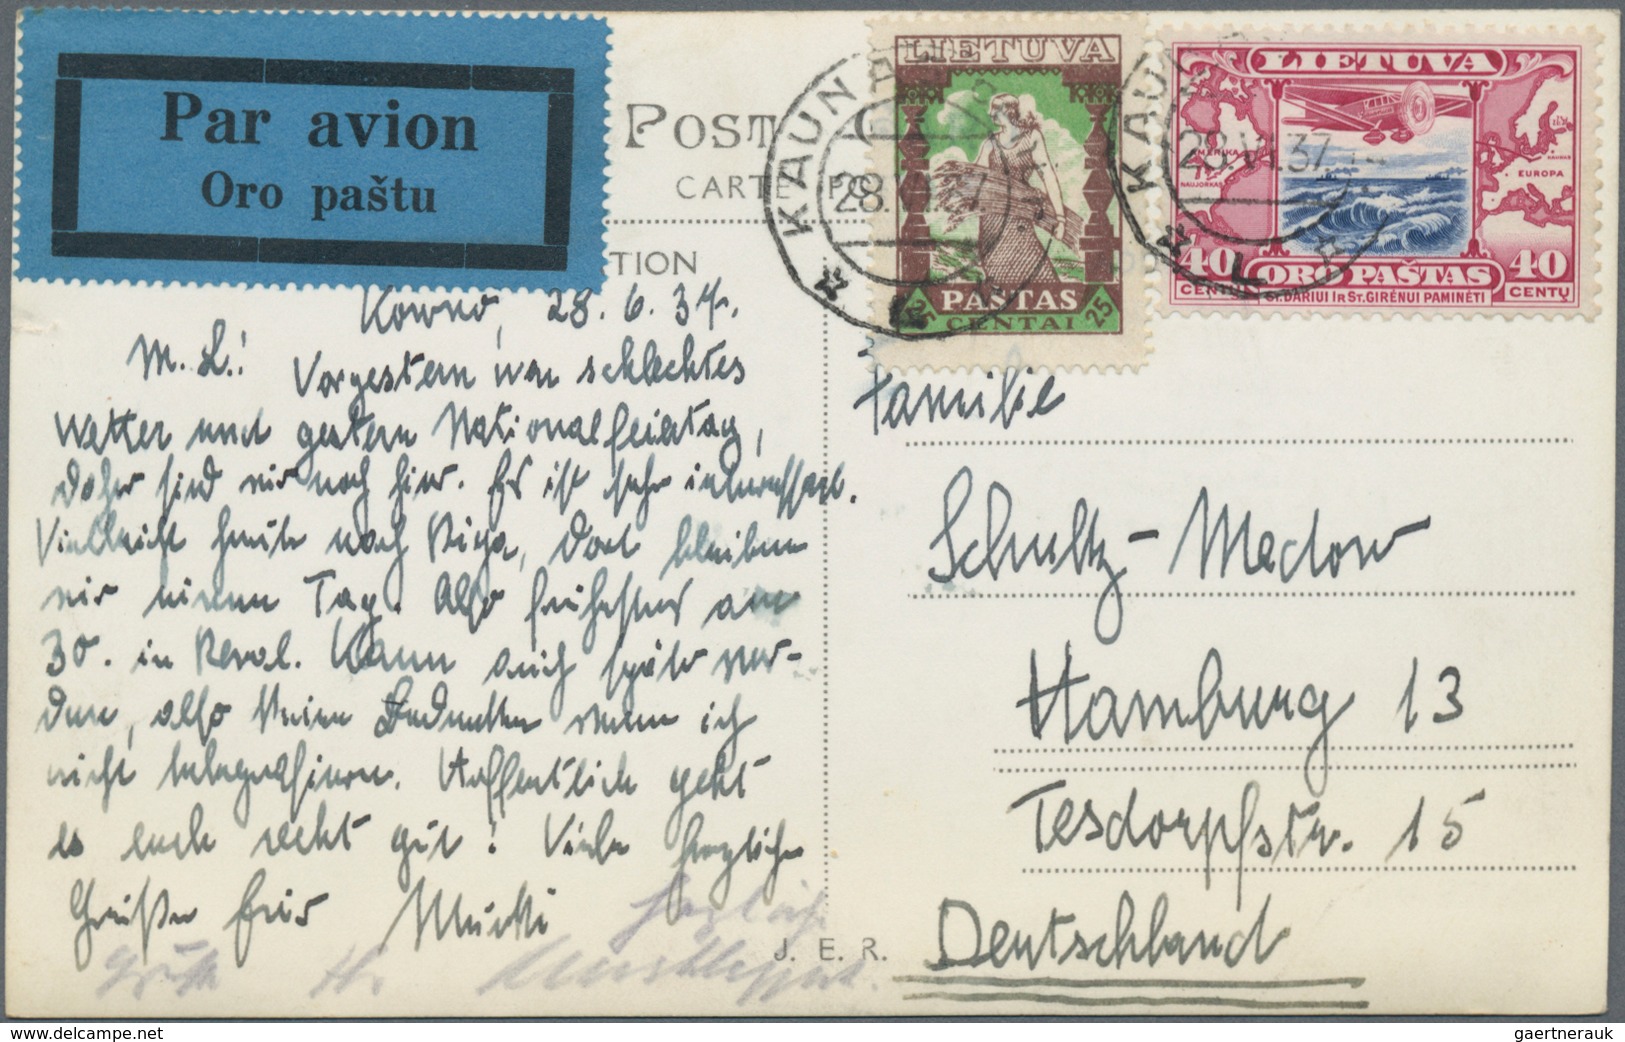 Par avion
Oro paštu
POST
CARTE PO
TION
LIETUVA
PAŠTAS
25 CENTAI 25
KAUNAS
28.VI.37
LIETUVA
AMERIKA
NAUJORKAS
KAUNAS
EUROPA
40 ORO PAŠTAS 40
CENTŲ ST. DARIUI IR ST. GIRĖNUI PAMINĖTI CENTŲ
KAUNAS
28.VI.37
Kowno, 28. 6. 37.
M. L.! Vorgestern war schlechtes
Wetter und gestern Nationalfeiertag,
daher sind wir noch hier. Es ist sehr interessant.
Vielleicht heute nach Riga, dort bleiben
wir einen Tag. Also frühestens am
30. in Reval. Kann auch später wer-
den, also keine Bedenken wenn ich
nicht telegrafiere. Hoffentlich geht
es euch recht gut! Viele herzliche
Grüße Euer Mucki
herzliche
Grüße H.
Familie
Schultz-Medow
Hamburg 13
Tesdorpfstr. 15
Deutschland
J. E. R.
www.delcampe.net
gaertnerauk